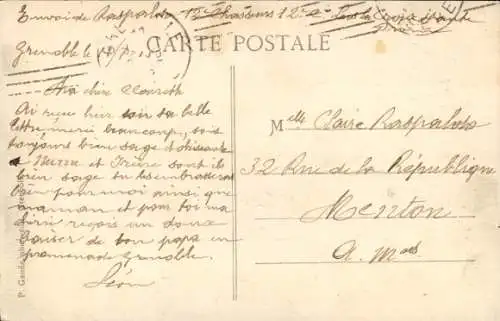 Envoi de Raspaldo 12e Chasseurs 12e Cie
CARTE POSTALE
Grenoble le
Ma chère Clairette
Ai reçu hier soir ta belle
lettre merci beaucoup, sois
toujours bien sage et obéissante
Mizou et Irène sont ils
bien sage tu les embrasseras
bien pour moi ainsi que
maman et pour toi ma
chérie reçois un doux
baiser de ton papa en
promenade Grenoble.
Léon
Melle Claire Raspaldo
32 Rue de la République
Menton
A. Mmes